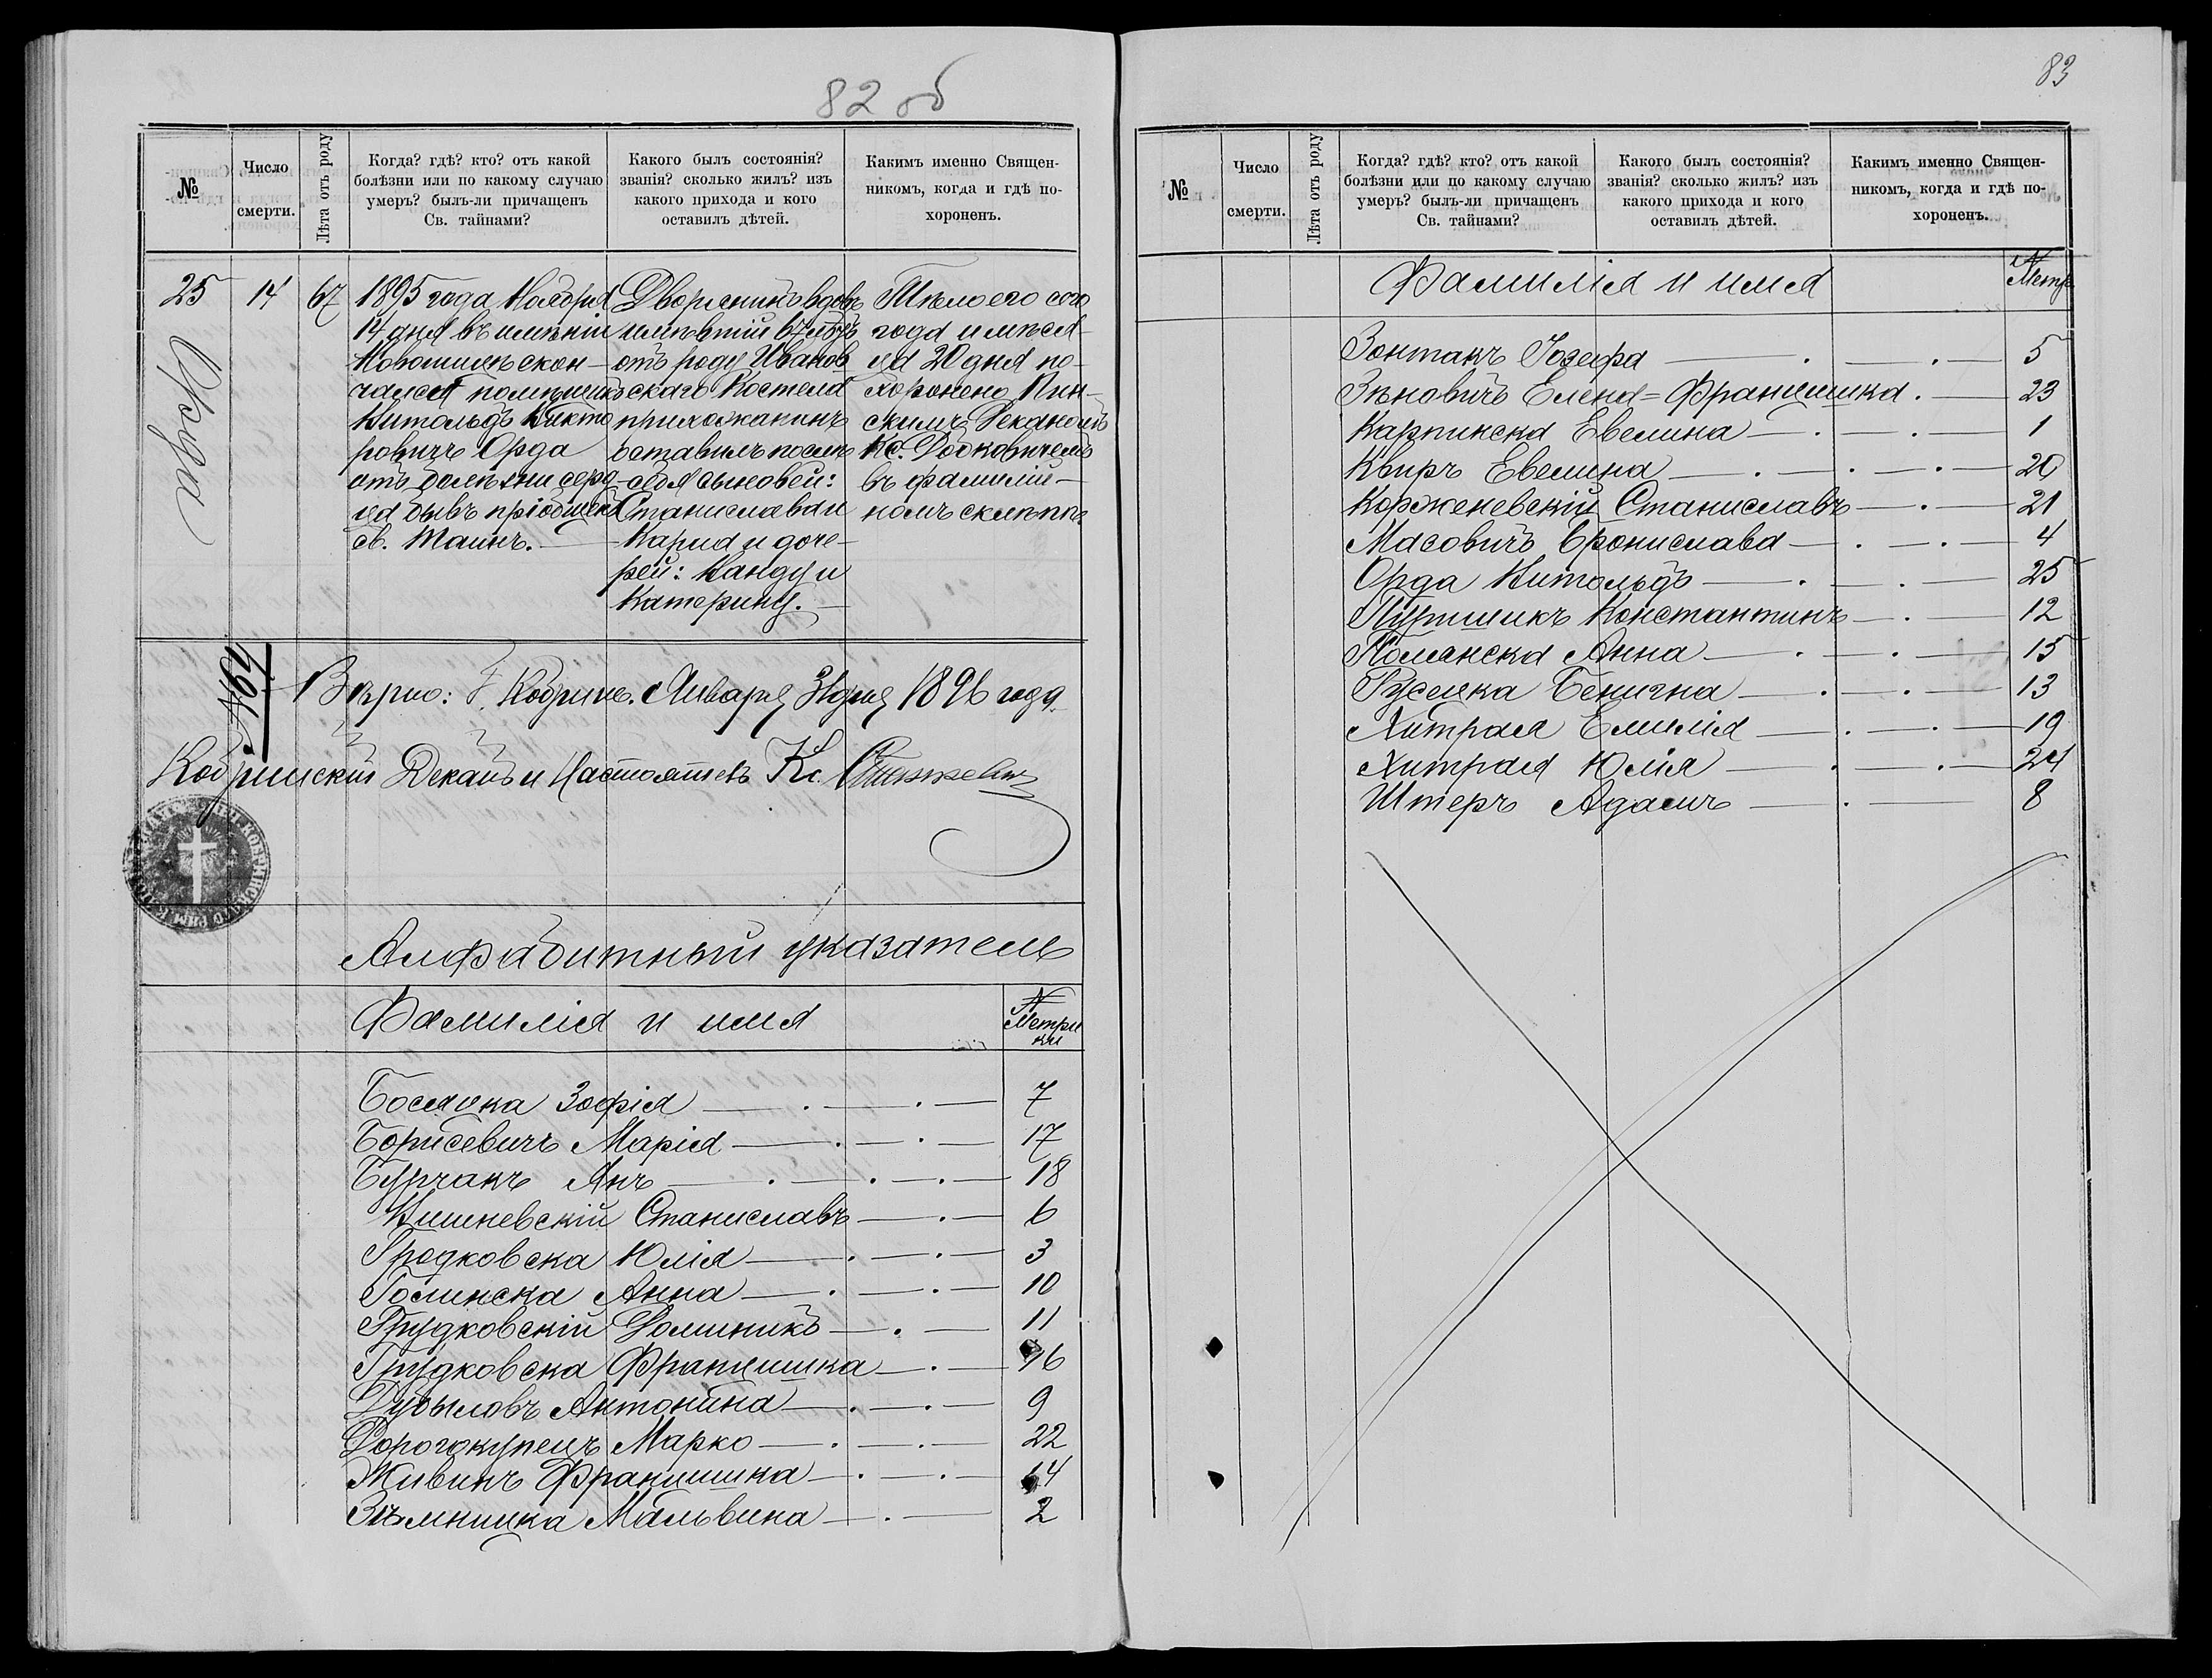 82 об
№
Число
смерти.
Лѣта отъ роду
Когда? гдѣ? кто? отъ какой
болѣзни или по какому случаю
умеръ? былъ-ли причащенъ
Св. тайнами?
Какого былъ состоянія?
званія? сколько жилъ? изъ
какого прихода и кого
оставилъ дѣтей.
Какимъ именно Священ-
никомъ, когда и гдѣ по-
хороненъ.
25
Орда
14
67
1895 года Ноября
14 дня въ имѣніи
Новошинъ скон-
чался помѣщикъ
Витольдъ Викто
ровичъ Орда
отъ болѣзни серд-
ца бывъ пріобщенъ
св. Таинъ.
Дворянинъ вдовъ
имѣвшій 67 лѣтъ
отъ роду Иванов
скаго Костела
прихожанинъ
оставилъ послѣ
себя сыновей:
Станислава и
Карла и доче-
рей: Ванду и
Катерину.
Тѣло его сего
года и мѣся-
ца 20 дня по-
хоронено Пин-
скимъ Деканомъ
Кс.
въ фамилій-
номъ склепѣ.
№ 64
Вѣрно: Г. Кобринъ. Января 31 дня 1896 года.
Кобринскій Деканъ и Настоятель Кс.
Алфабитный указатель
Фамилія и имя
№ Метри
ки
Босяцка Зофія 7
Борисевичъ Марія 17
Бурчакъ Янъ 18
Вишневскій Станиславъ 6
Гродковска Юлія 3
Голинска Анна 10
Грудковскій Доминикъ 11
Грудковска Францишка 16
Дубыловъ Антонина 9
Дорогокупецъ Марко 22
Живинъ Францишка 14
Зѣмницка Мальвина 2
83
№
Число
смерти.
Лѣта отъ роду
Когда? гдѣ? кто? отъ какой
болѣзни или по какому случаю
умеръ? былъ-ли причащенъ
Св. тайнами?
Какого былъ состоянія?
званія? сколько жилъ? изъ
какого прихода и кого
оставилъ дѣтей.
Какимъ именно Священ-
никомъ, когда и гдѣ по-
хороненъ.
Фамилія и имя
№ Метр
Зонтакъ Юзефа 5
Зѣновичъ Елена=Францишка 23
Карпинска Евелина 1
Квиръ Евелина 20
Корженевскій Станиславъ 21
Масовичъ Бронислава 4
Орда Витольдъ 25
Пуришикъ Константинъ 12
Поманска Анна 15
Русецка Бенигна 13
Хитрая Емилія 19
Хитрая Юлія 24
Штеръ Адамъ 8